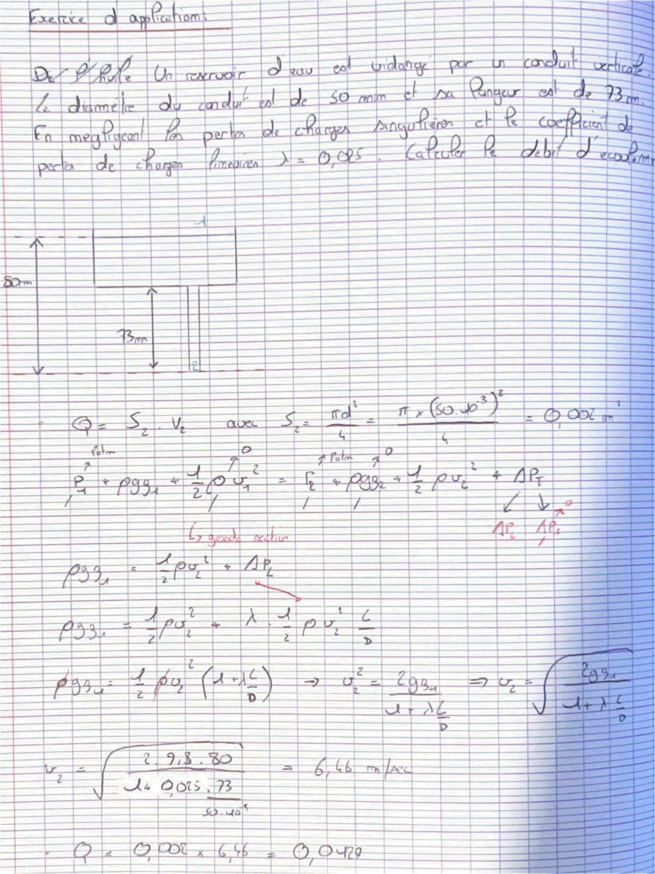 Exercice d'application:
Un reservoir d'eau est vidangé par un conduit verticale.
le diametre du conduit est de 50 mm et sa longeur est de 73 m.
En negligeant les pertes de charges singulières et le coefficient de
pertes de charges lineaires λ = 0,025. Calculer le debit d'ecoulem
1
80m
73m
2
Q = S₂ . V₂ avec S₂ = πd²/4 = π × (50.10⁻³)²/4 = 0,002 m²
Patm 0 Patm 0
P₁ + ρgz₁ + 1/2 ρ v₁² = P₂ + ρgz₂ + 1/2 ρ v₂² + ΔP_T
ΔP_L ΔP_S 0
↳ grande section
ρgz₁ = 1/2 ρv₂² + ΔP_L
ρgz₁ = 1/2 ρv₂² + λ . 1/2 ρ v₂² L/D
ρgz₁ = 1/2 ρv₂² (1 + λ L/D) ⇒ v₂² = 2gz₁/(1 + λ L/D) ⇒ v₂ = √(2gz₁/(1 + λ L/D))
v₂ = √(2 . 9,8 . 80/(1 + 0,025 . 73/50.10⁻³)) = 6,46 m/sec
Q = 0,002 × 6,46 = 0,0129